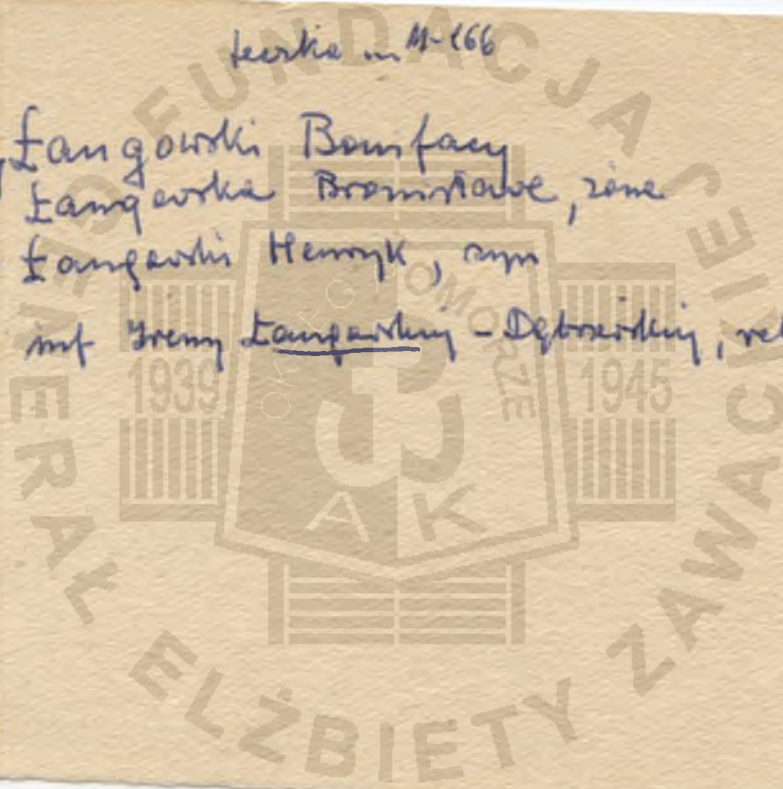 teczka nr M-166
Łangowski Bonifacy
Łangowska Bronisława, żona
Łangowski Henryk, syn
inf Ireny Łangowskiej - Dąbrowskiej, rel
FUNDACJA GENERAŁ ELŻBIETY ZAWACKIEJ
OKRĘG POMORZE
1939 1945
AK